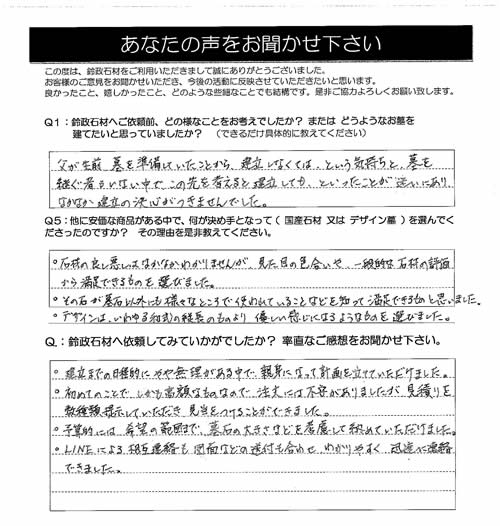 あなたの声をお聞かせ下さい
この度は、鈴政石材をご利用いただきまして誠にありがとうございました。
お客様のご意見をお聞かせいただき、今後の活動に反映させていただきたいと思います。
良かったこと、嬉しかったこと、どのような些細なことでも結構です。是非ご協力よろしくお願い致します。
Q1：鈴政石材へご依頼前、どの様なことをお考えでしたか？ または どうようなお墓を
建てたいと思っていましたか？ （できるだけ具体的に教えてください）
父が生前、墓を準備していたことから、建立しなくては、という気持ちと、墓を
継ぐ者がいない中で、この先を考えると建立しても、といったことが迷いにあり
なかなか建立の決心がつきませんでした。
Q5：他に安価な商品がある中で、何が決め手となって（ 国産石材 又は デザイン墓 ）を選んでく
ださったのですか？ その理由を是非教えてください。
○石材の良し悪しはなかなかわかりませんが、見た目の色合いや、一般的な石材の評価
から満足できるものを選びました。
○その石が墓石以外にも様々なところで使われていることなどを知って満足できるものと思いました。
○デザインは、いわゆる和式の縦長のものより 優しい感じになるようなものを選びました。
Q.：鈴政石材へ依頼してみていかがでしたか？ 率直なご感想をお聞かせ下さい。
○建立までの日程的にやや無理がある中で、親身になって計画を立てていただけました。
○初めてのことで、しかも高額なものなので、注文には不安がありましたが 見積りを
数種類提示していただき 見当をつけることができました。
○予算的には 希望の範囲まで、墓石の大きさなどを考慮して納めていただけました。
○LINEによる相互連絡も 図面などの送付も合わせ わかりやすく 迅速に連絡
できました。